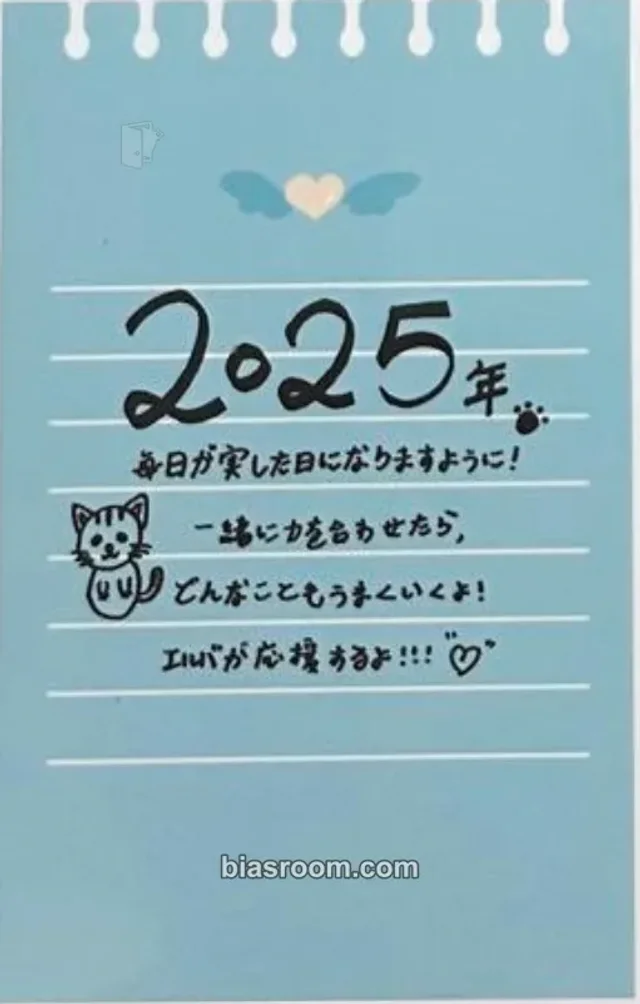 2025年
毎日が実した日になりますように!
一緒に力を合わせたら,
どんなこともうまくいくよ!
エルバが応援するよ!!!
biasroom.com